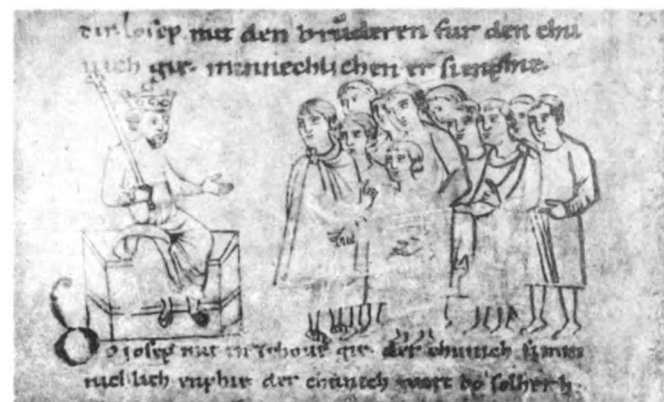 iosep mit den brůderen fur den chu
nich gie. mennechlichen er si enphie.
Do iosep mit in ze houe gie. der chunich si
nichlich enphie der chunich wart do